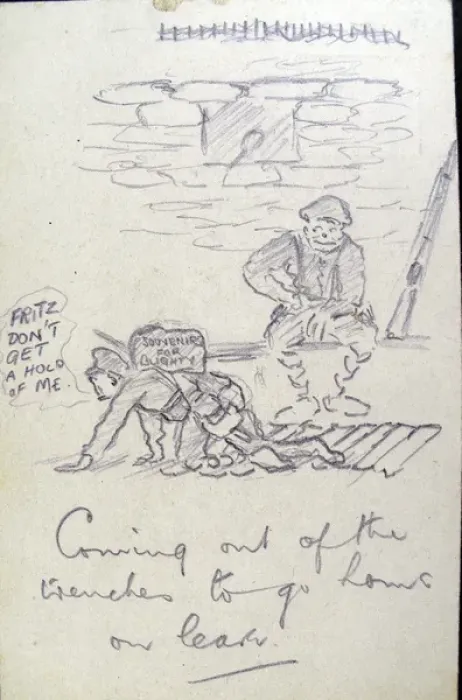 FRITZ
DON'T
GET
A HOLD
OF ME.
SOUVENIRS
FOR
BLIGHTY
Coming out of the
trenches to go home
on leave.